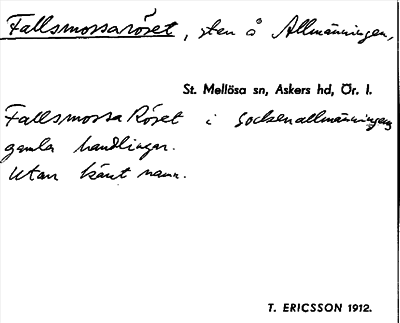 Fallsmossaröset, sten å Allmänningen,
St. Mellösa sn, Askers hd, Ör. l.
Fallsmossa Röset i Sockenallmänningens
gamla handlingar.
Utan känt namn.
T. ERICSSON 1912.